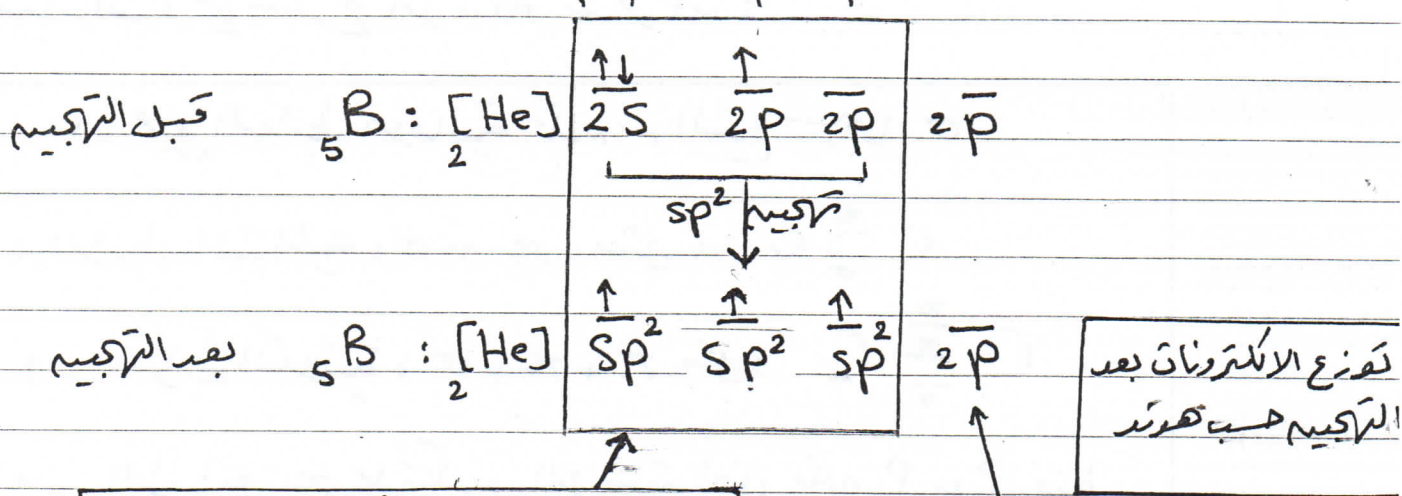 قبل التهجين ₅B : [He]₂ 2S 2p 2p 2p
↑↓ ↑
تهجين sp²
بعد التهجين ₅B : [He]₂ Sp² Sp² Sp² 2p
↑ ↑ ↑
توزع الالكترونات بعد
التهجين حسب هوند